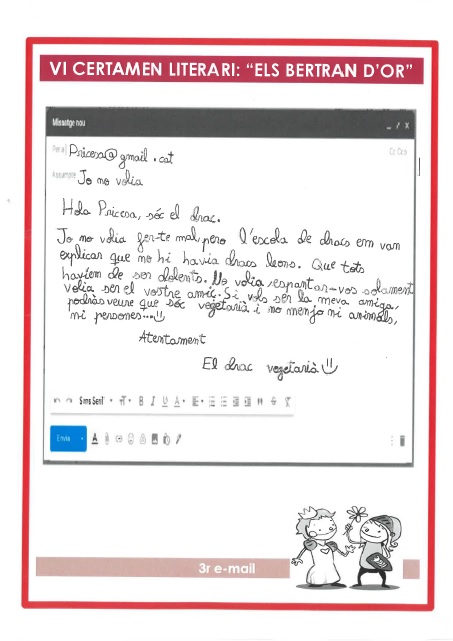 VI CERTAMEN LITERARI: “ELS BERTRAN D’OR”
Missatge nou
Per a Pricesa@gmail.cat
Cc Cco
Assumpte Jo no volia
Hola Pricesa, sóc el drac.
Jo no volia fer-te mal, pero l'escola de dracs em van
explicar que no hi havia dracs leons. Que tots
havíem de ser dolents. No volia, espantar-vos solament
volia ser el vostre amic. Si vols ser la meva amiga,
podràs veure que sóc vegetarià i no menjo ni animals,
ni persones...
Atentament
El drac vegetarià
Sans Serif
Envia
3r e-mail